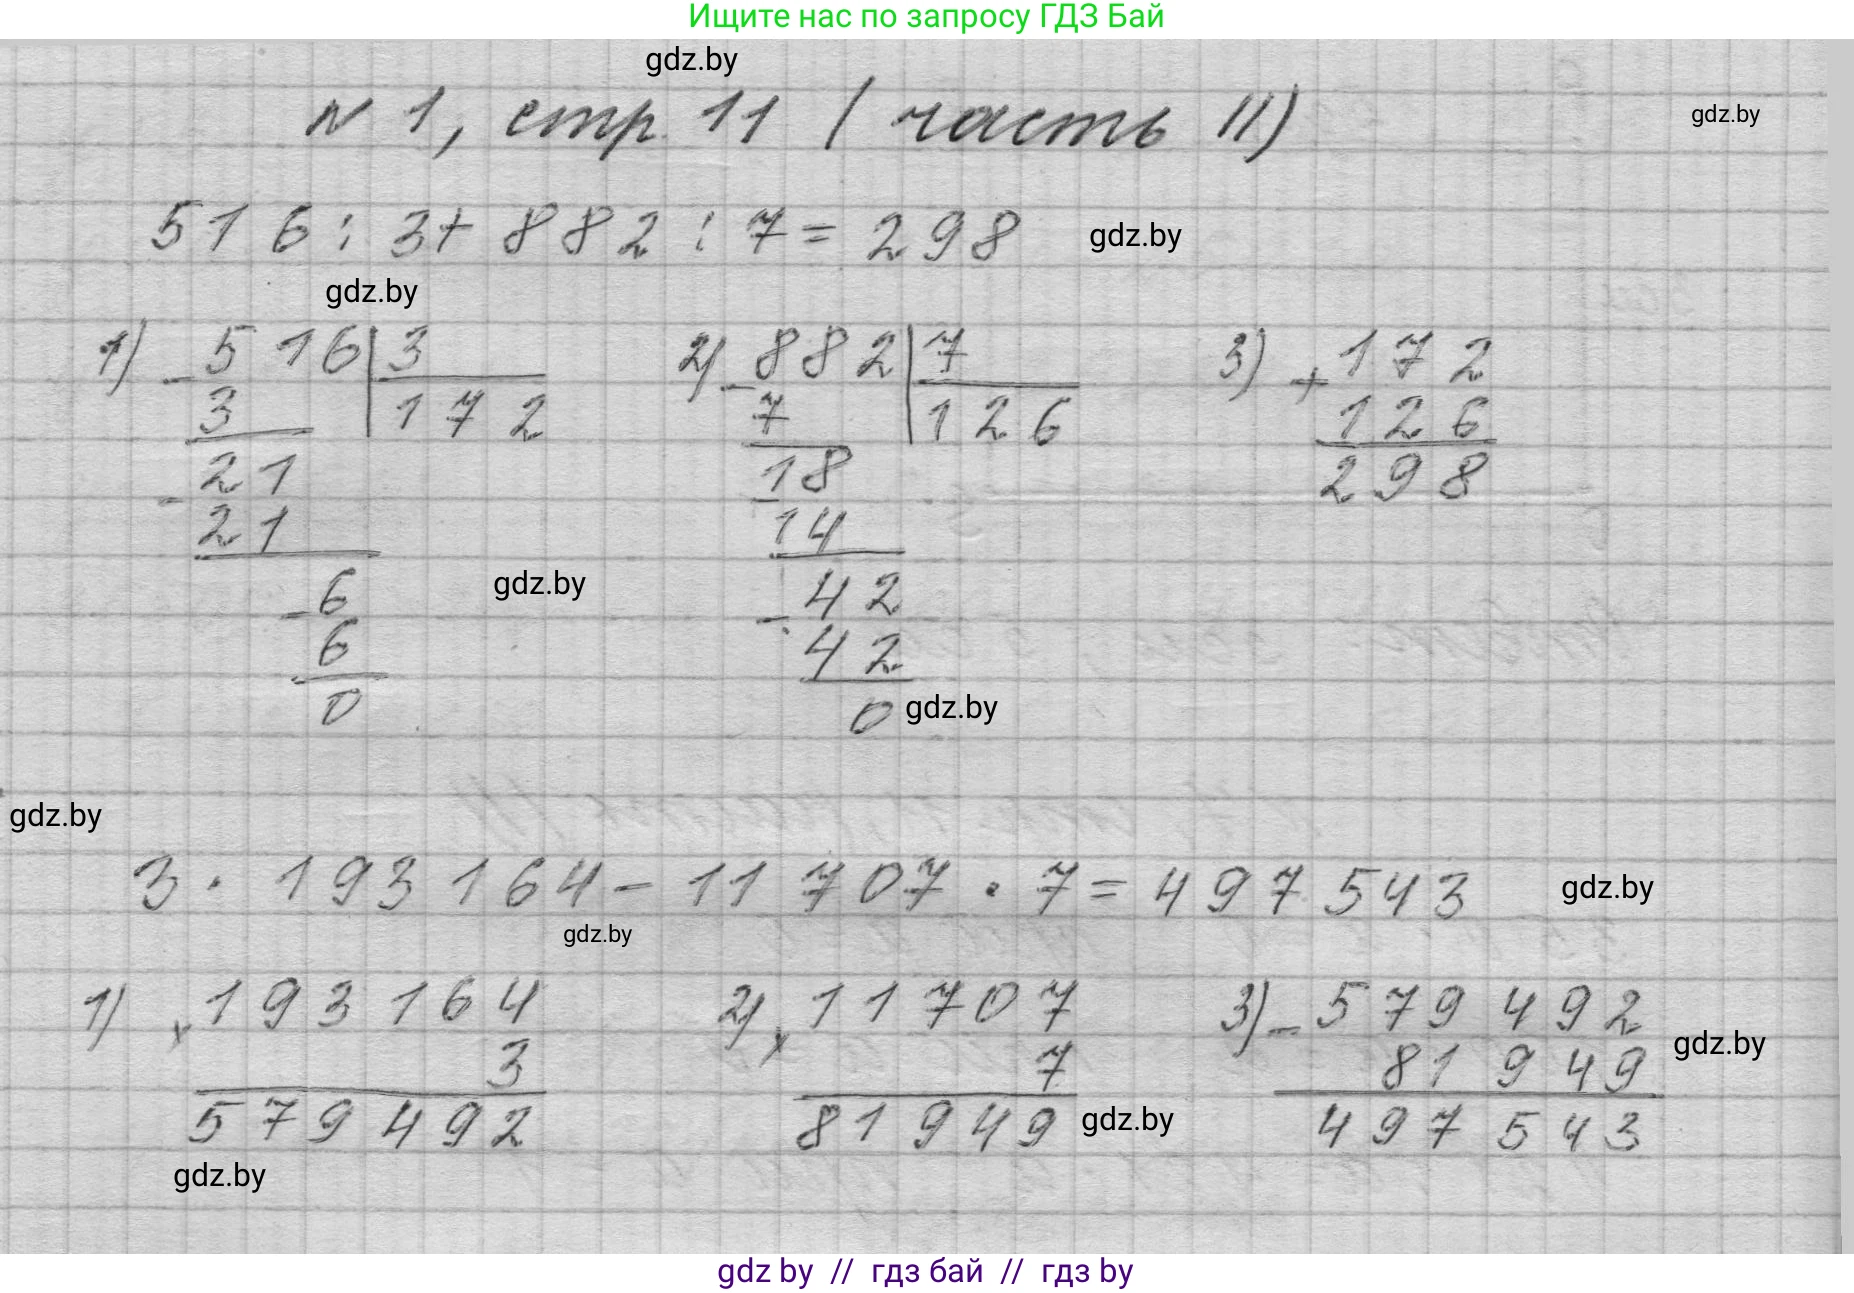 Ищите нас по запросу ГДЗ Бай
gdz.by
№ 1, стр. 11 (часть II)
gdz.by
516 : 3 + 882 : 7 = 298
gdz.by
gdz.by
1) - 516 | 3
3 | 172
- 21
21
- 6
6
0
gdz.by
2) - 882 | 7
7 | 126
- 18
14
- 42
42
0
gdz.by
3) + 172
126
298
gdz.by
3 · 193 164 - 11 707 · 7 = 497 543
gdz.by
gdz.by
1) x 193 164
3
579 492
gdz.by
2) x 11 707
7
81 949
gdz.by
3) - 579 492
81 949
497 543
gdz.by
gdz by // гдз бай // гдз by